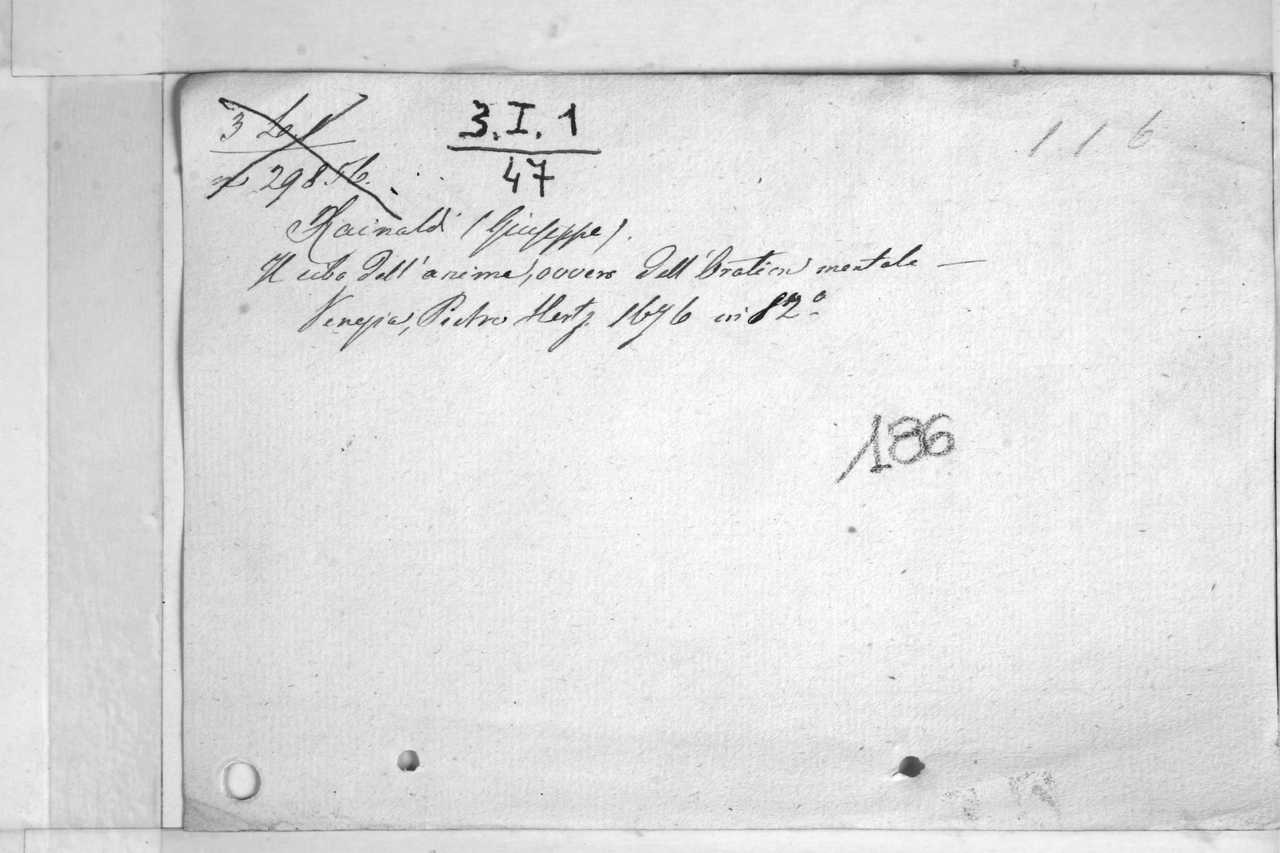 3. I. 1
116
47
Rainaldi (Giuseppe).
Il cibo dell'anima, ovvero dell'Oration mentale —
Venezia, Pietro Hertz. 1676 in 12º
186